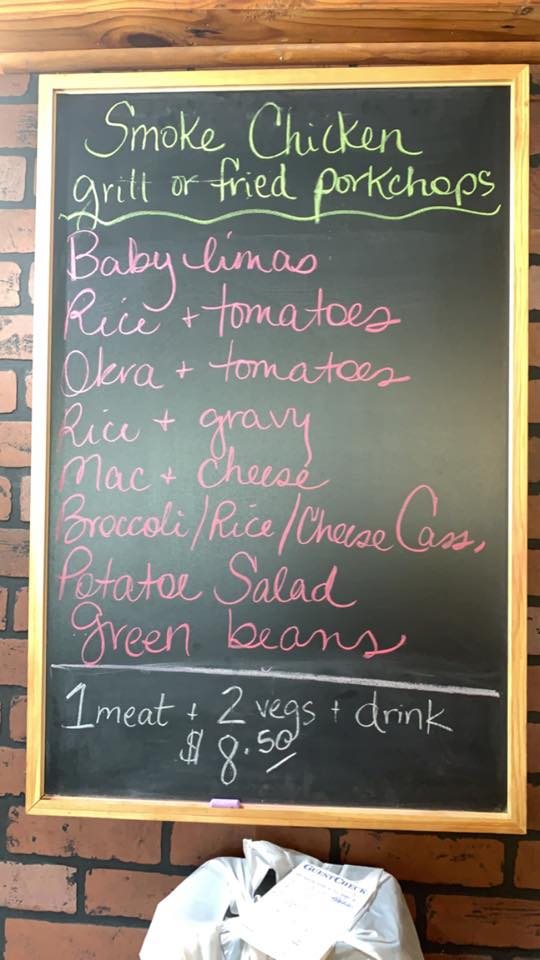 Smoke Chicken
grill or fried porkchops
Baby limas
Rice + tomatoes
Okra + tomatoes
Rice + gravy
Mac + cheese
Broccoli/Rice/Cheese Cass.
Potatoe Salad
green beans
1 meat + 2 vegs + drink
$8.50
GUESTCHECK